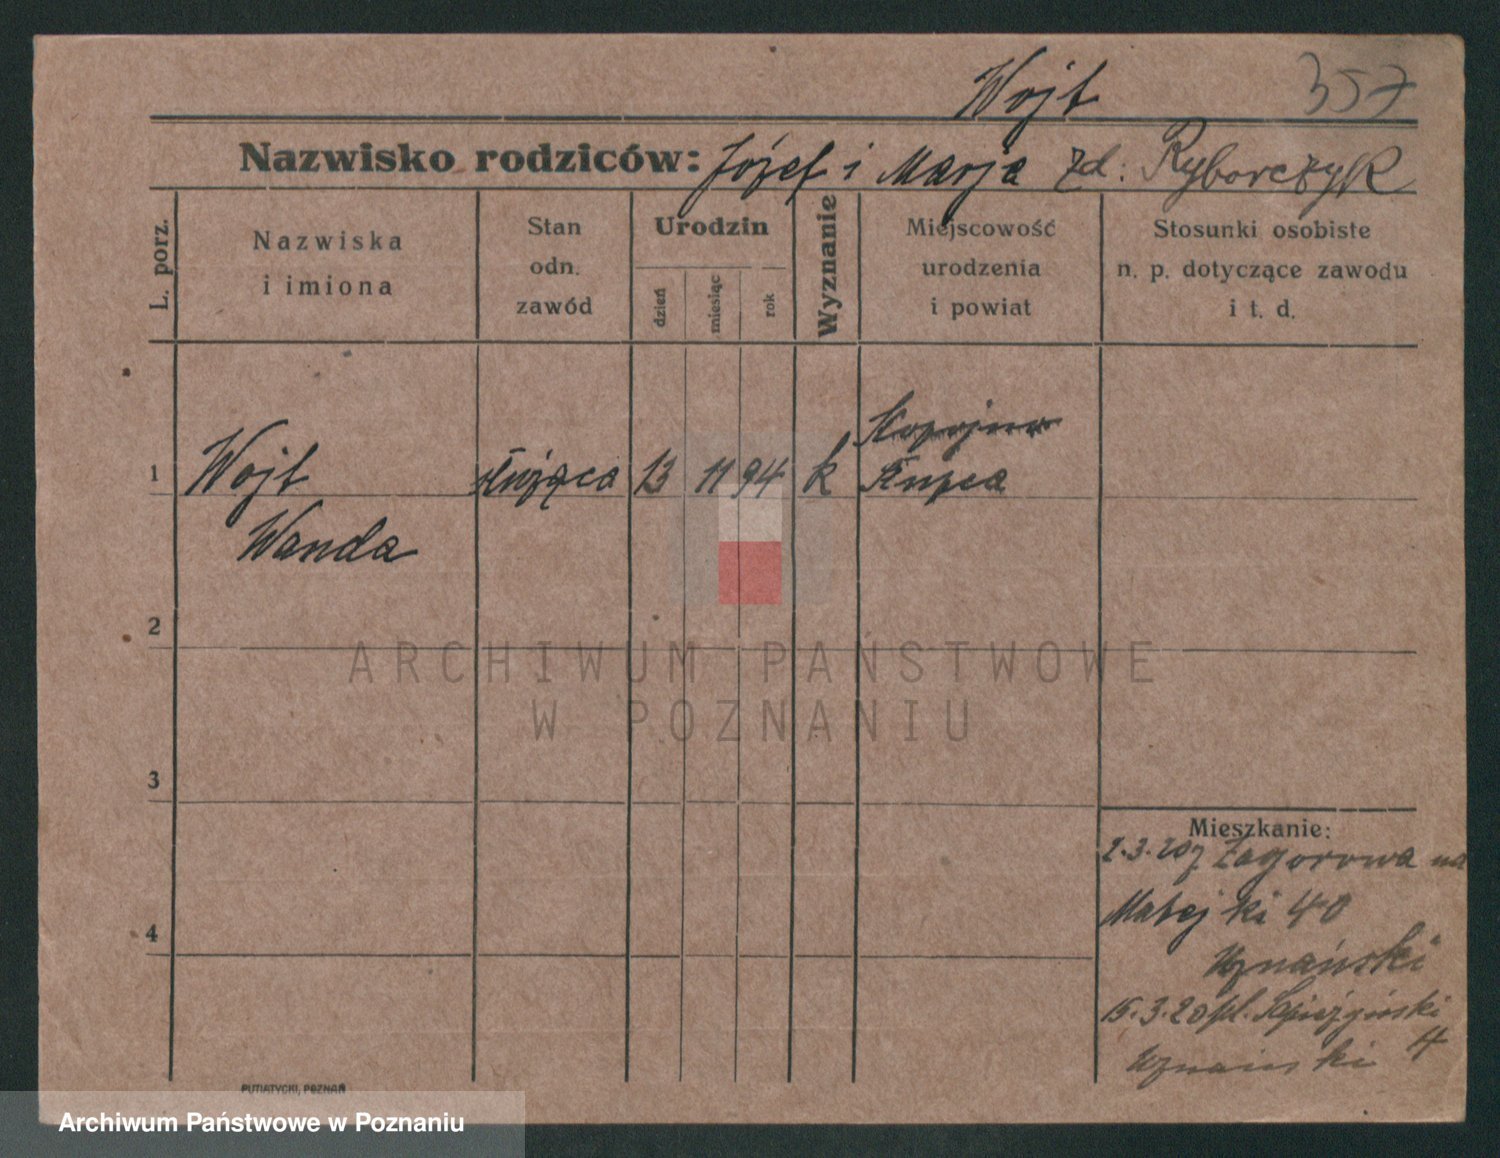 Wojt
357
Nazwisko rodziców: Józef i Marja zd: Ryborczyk
L. porz.
Nazwiska
i imiona
Stan
odn.
zawód
Urodzin
dzień
miesiąc
rok
Wyznanie
Miejscowość
urodzenia
i powiat
Stosunki osobiste
n. p. dotyczące zawodu
i t. d.
1 Wojt służąca 13 11 94 k
Wanda
2
3
4
Mieszkanie:
2.3.20 z Zagorowa na
Matejki 40
Uznański
15.3.20 pl. Sapieżyński
4
Uznański
PUTIATYCKI, POZNAŃ
ARCHIWUM PAŃSTWOWE
W POZNANIU
Archiwum Państwowe w Poznaniu